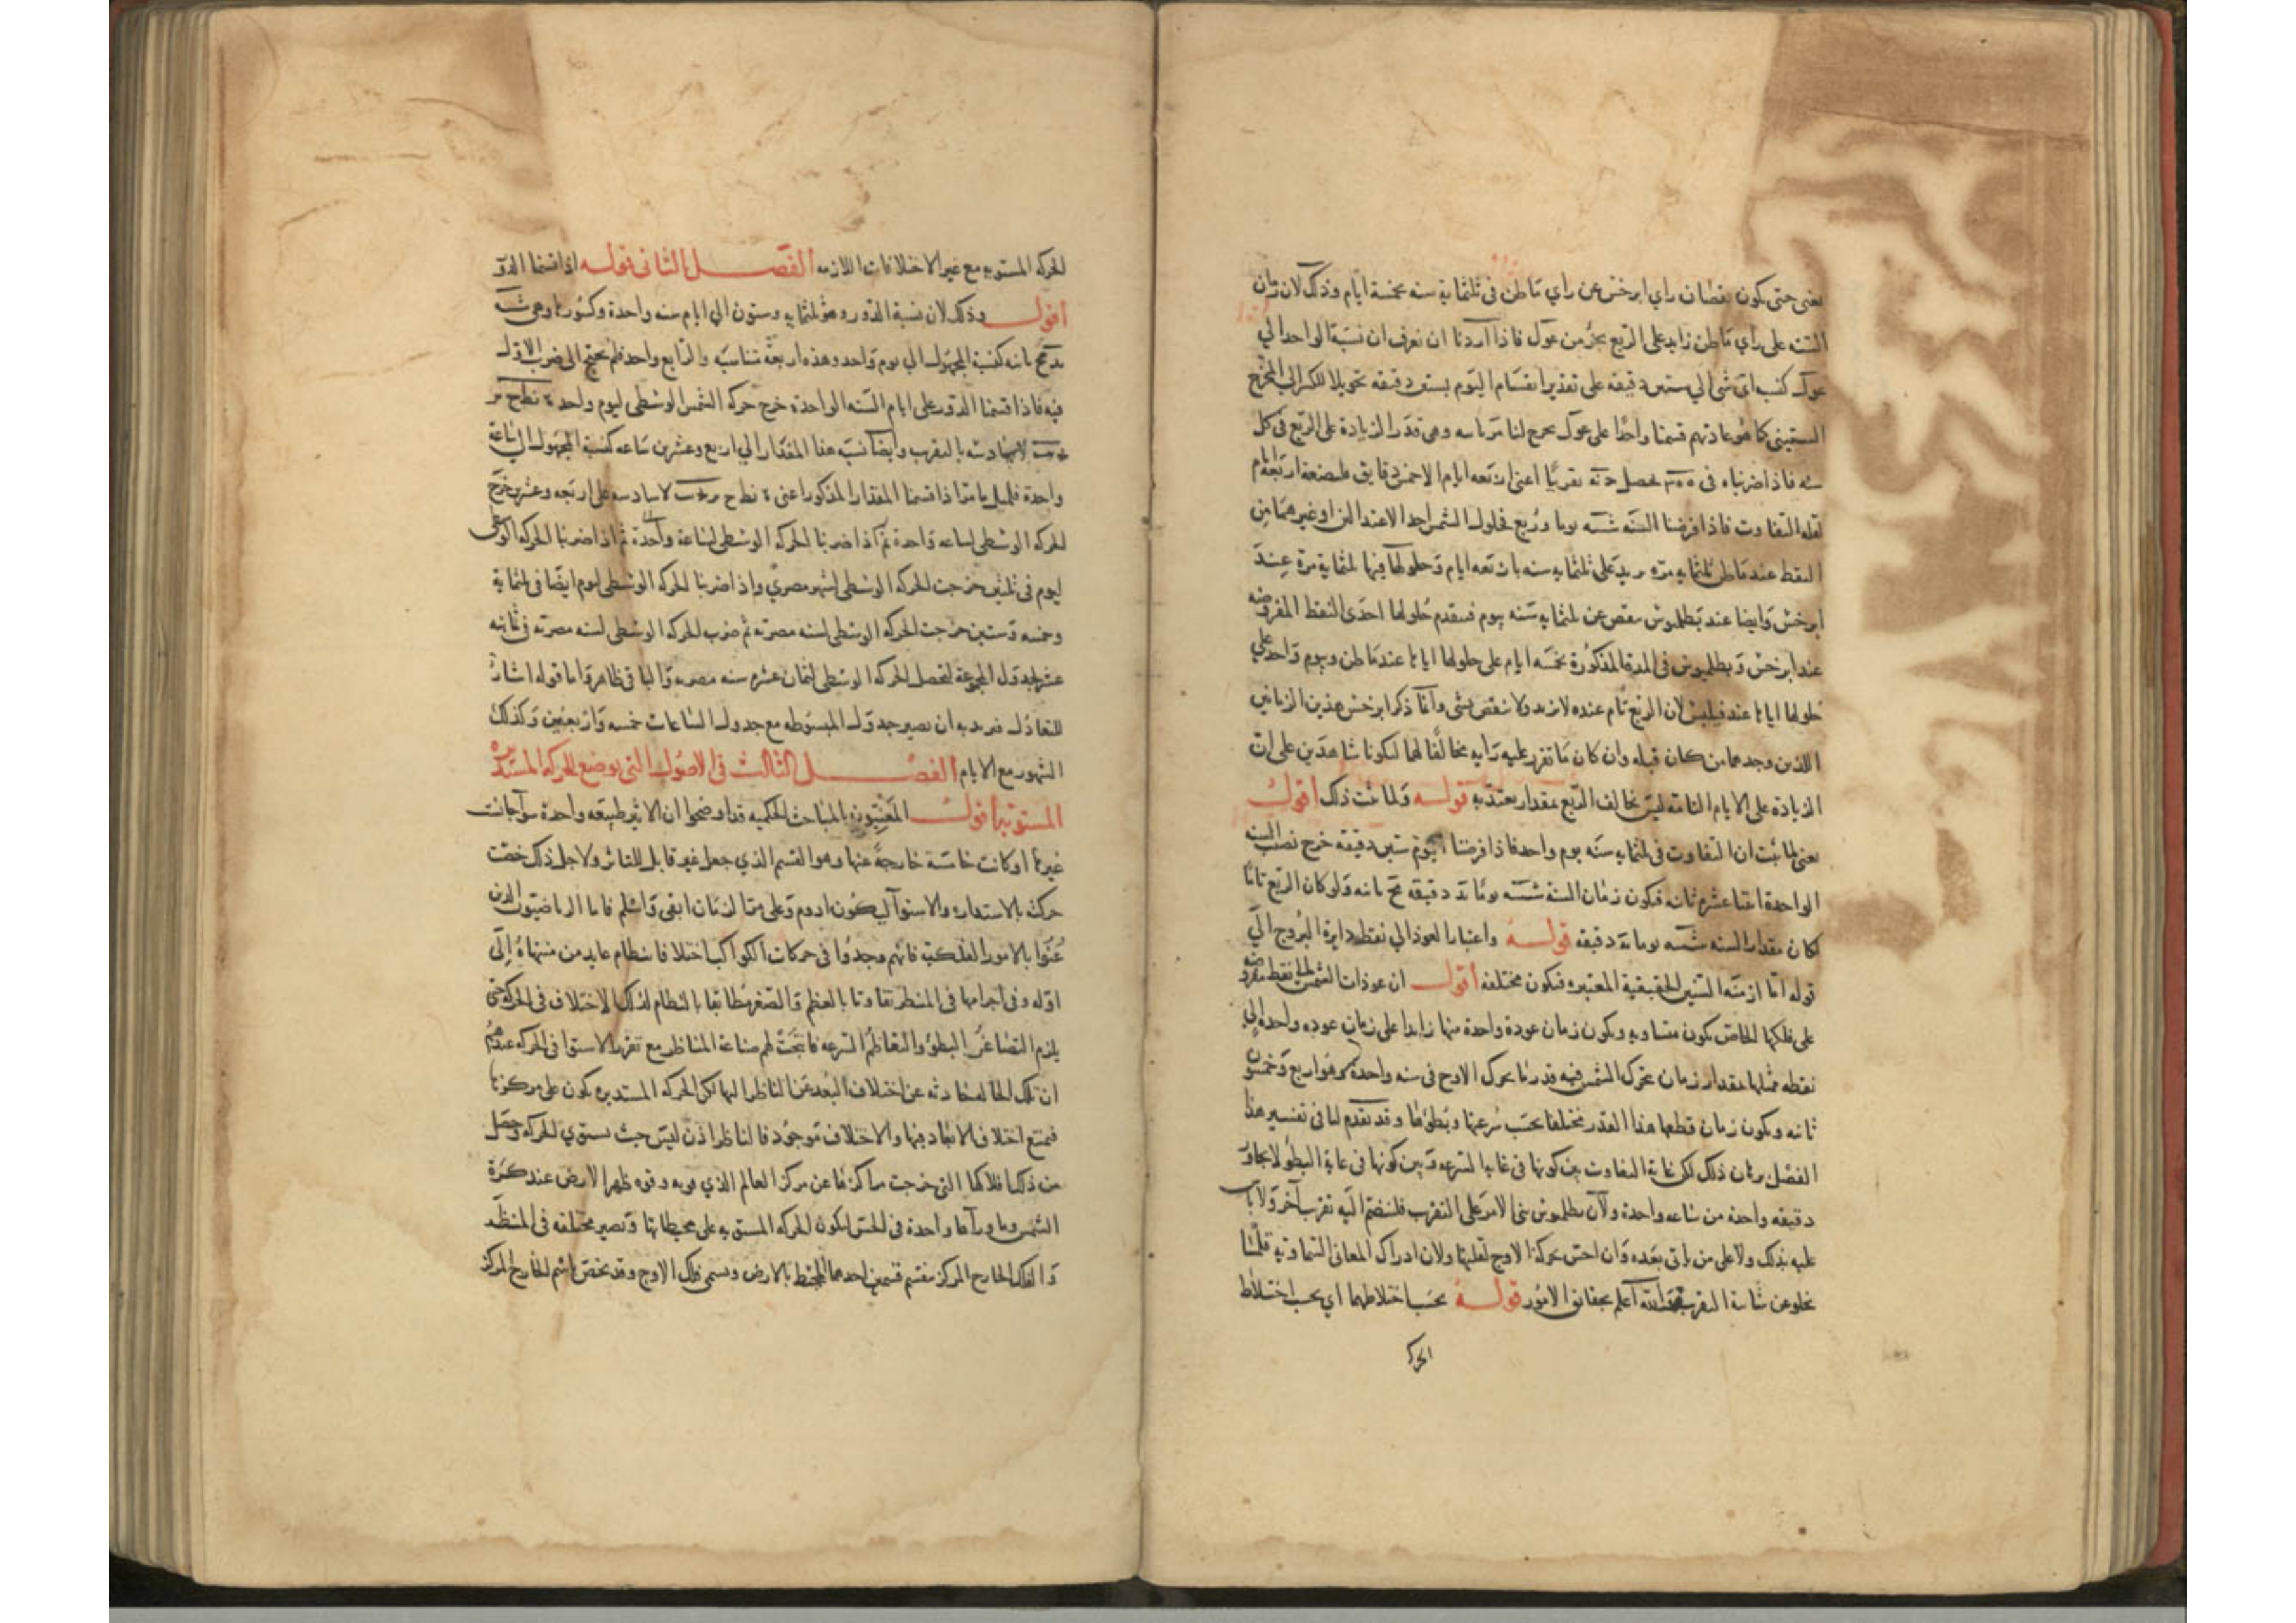 يعنى حتى يكون نقصان راى ابرخس عن راي ماطن فى ثلثماية سنه بخمسة ايام وذلك لان زمان
السنه على راي ماطن زايد على الربع بجز من عول فاذا اردنا ان نعرف ان نسبة الواحد الي
عول كنسبة اى شى الي ستين دقيقه على تقدير انقسام اليوم بستين دقيقه تحويلا للكسر الى المخرج
الستينى كما هو عادتهم قسمنا واحدا على عول خرج لنا وهى قدر الزيادة على الربع فى كل
سنه فاذا ضربناه فى يحصل تقريبا اعنى اربعه ايام الا خمس دقايق اربعه ايام
لقله التفاوت فاذا فرضنا السنه شسه يوما وربع فحلول الشمس احد الاعتدالين او غيرهما من
النقط عند ماطن ثلثمايه مره يزيد على ثلثمايه سنه باربعه ايام وحلولها فيها ثلثماية مرة عند
ابرخس وايضا عند بطلميوس ينقص عن ثلثمايه سنه بيوم فيتقدم حلولها احدى النقط المفروضه
عند ابرخس وبطلميوس فى المدة المذكورة بخمسه ايام على حلولها اياها عند ماطن وبيوم واحد على
حلولها اياها عند فيلبس لان الربع تام عنده لا يزيد ولا ينقص بشى وانما ذكر ابرخس هذين الزمانين
اللذين وجدهما من كان قبله وان كان ما تقرر عليه رايه مخالفا لهما ليكونا شاهدين على ان
الزيادة على الايام التامه ليس يخالف الربع بمقدار يعتد به قوله ولما ثبت ذلك اقول
يعنى لما ثبت ان التفاوت فى ثلثمايه سنه يوم واحد فاذا فرضنا اليوم ستين دقيقه خرج نصيب السنه
الواحدة اثنا عشره ثانيه فيكون زمان السنه شسه يوما يد دقيقه مح ثانيه ولو كان الربع تاما
لكان مقدار السنه شسه يوما يه دقيقه قوله واعتبار العود الي نقط دايرة البروج الي
قوله اما ازمنه السنين الحقيقية المعتبره فيكون مختلفه اقول ان عودات الشمس الى نقط مفروضه
على فلكها الخاص يكون متساويه ويكون زمان عودة واحدة منها زايدا على زمان عوده واحده الى
نقطه ممثلها بمقدار زمان يتحرك الشمس فيه قدر ما يحرك الاوج فى سنه واحدة وهو اربع وخمسون
ثانيه ويكون زمان قطعها هذا القدر مختلفا بحسب سرعتها وبطؤها وقد تقدم لنا فى تفسير هذا
الفصل برهان ذلك لكن غاية التفاوت بين كونها فى غاية السرعه وبين كونها فى غاية البطو لا يجاوز
دقيقه واحدة من ساعه واحدة ولان بطلميوس بنى الامر على التقريب فلينضم اليه تقريب آخر ولا باس
عليه بذلك ولا على من ياتى بعده وان احس بحركة الاوج لقلتها ولان ادراك المعانى السماويه قلما
يخلو عن شايبة التقريب والله اعلم بحقايق الامور قوله بحسب اختلاطهما اي بحسب اختلاط
الحركه
الحركه المستويه مع غير الاختلافات اللازمه الفصل الثانى قوله اذا قسمنا الدور
اقول وذلك لان نسبة الدور وهو ثلثمايه وستون الي ايام سنه واحدة وكسورها وهى شسه
يد مح ثانيه كنسبة المجهول الي يوم واحد وهذه اربعة متناسبه والرابع واحد فلم يحتج الى ضرب الاول
فيه فاذا قسمنا الدور على ايام السنه الواحدة خرج حركه الشمس الوسطى ليوم واحد ٠ نط ح مر
لا سادسه بالتقريب وايضا نسبة هذا المقدار الي اربع وعشرين ساعه كنسبة المجهول الى ساعة
واحدة فلمثل ما مر اذا قسمنا المقدار المذكور اعنى ٠ نط ح لا سادسه على اربعه وعشرين خرج
الحركه الوسطى لساعه واحدة ثم اذا ضربنا الحركه الوسطى لساعة واحدة ثم اذا ضربنا الحركه الوسطى
ليوم فى ثلثين خرجت الحركه الوسطى لشهر مصري واذا ضربنا الحركه الوسطى ليوم ايضا فى ثلثماية
وخمسه وستين خرجت الحركه الوسطى لسنه مصريه ثم ضرب الحركه الوسطى لسنه مصريه فى ثمانيه
عشر لجدول المجموعة لتحصل الحركه الوسطى لثمان عشره سنه مصريه والباقى ظاهر واما قوله اشارة
للتعادل فيريد به ان يصير جدول المبسوطه مع جدول الساعات خمسه واربعين وكذلك
الشهور مع الايام الفصل الثالث فى الاصول التى يوضع للحركه المستديره
المستويه اقول المعنيون بالمباحث الحكميه قد اوضحوا ان الاثير طبيعه واحدة سوآ جانست
غيرها او كانت خامسة خارجة عنها وهو القسم الذي جعل غير قابل للتاثر ولاجل ذلك خصت
حركته بالاستداره والاستوآ ليكون ادوم وعلى ممر الزمان ابقى واسلم فاما الرياضيون الذين
عنوا بالامور الفلكية فانهم وجدوا فى حركات الكواكب اختلافا بنظام عايد من منتهاه الى
اوله وفى اجرامها فى المنظر تفاوتا بالعظم والصغر مطابقا بالنظام لذلك الاختلاف فى الحركه حتى
يلزم التصاغر البطؤ والتعاظم السرعه فانتجت لهم صناعة المناظر مع تقرر الاستوا فى الحركه عندهم
ان تلك الحاله حادثه عن اختلاف البعد عن الناظر اليها لكن الحركه المستديره يكون على مركزها
فيمتنع اختلاف الابعاد فيها والاختلاف موجود فالناظر اذن ليس حيث يستوي الحركه وحصل
من ذلك افلاكها التى خرجت مراكزها عن مركز العالم الذي هو به وقوه ظهر الارض عند كرة
الشمس وما ورآها واحدة فى الحس ليكون الحركه المستويه على محيطاتها وتصير مختلفه فى المنظر
والفلك الخارج المركز ينقسم قسمين احدهما المحيط بالارض ويسمى فلك الاوج وقد يخص باسم الخارج المركز